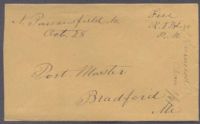 N. Parsonsfield Me
Oct. 28
Free
P. M.
Post Master
Bradford
Me.